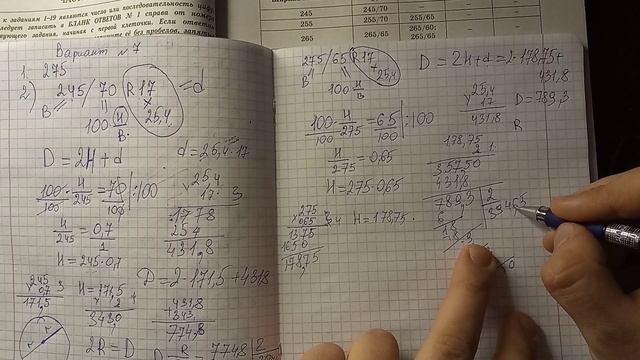 к заданиям 1-19 являются число или последовательность цифр,
следует записать в БЛАНК ОТВЕТОВ № 1 справа от номера
задания, начиная с первой клеточки. Если ответом
без пробелов, запятых
245 245/70
255 255/70 255/65
265 265/65 265/60;
265/65
Вариант №7
1. 275
2) 245/70 R17 = d
B H
100· H/B × 25,4
D = 2H + d
d = 25,4·17
100· H/245 = 70 |:100
100 100
H/245 = 0,7/1
H = 245·0,7
25,4
17
1778
254
431,8
245
0,7
171,5
H = 171,5
2
343,0
D = 2·171,5 + 431,8
431,8
343,
774,8
2R = D
7748 2
275/65 R17
× 25,4
B 100 H/B
100· H/275 = 65 |:100
100 100
H/275 = 0,65
H = 275·0,65
275
0,65
1375
1650
178,75
H = 178,75.
D = 2H + d = 2·178,75 +
431,8
25,4
17
431,8
D = 789,3
R
178,75
2
357,50
431,8
789,3 2
6 3946,5